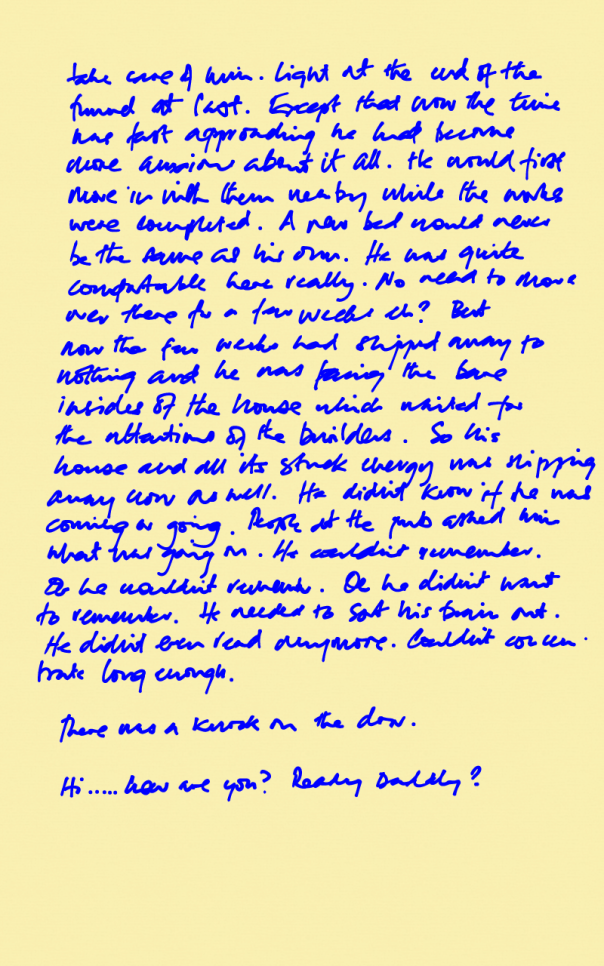 take care of him. Light at the end of the
funnel at last. Except that now the time
was fast approaching he had become
more anxious about it all. He would first
move in with them nearby while the works
were completed. A new bed would never
be the same as his own. He was quite
comfortable here really. No need to move
over there for a few weeks eh? But
now the few weeks had slipped away to
nothing and he was facing the bare
insides of the house which waited for
the attentions of the builders. So his
house and all its stuck energy was slipping
away now as well. He didn't know if he was
coming or going. People at the pub asked him
what was going on. He couldn't remember.
Or he wouldn't remember. Or he didn't want
to remember. He needed to sort his brain out.
He didn't even read anymore. Couldn't concen-
trate long enough.
There was a knock on the door.
Hi..... how are you? Ready Daddy?